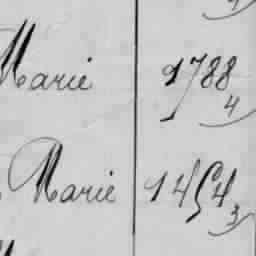 Marie 1788
4
Marie 1454
3